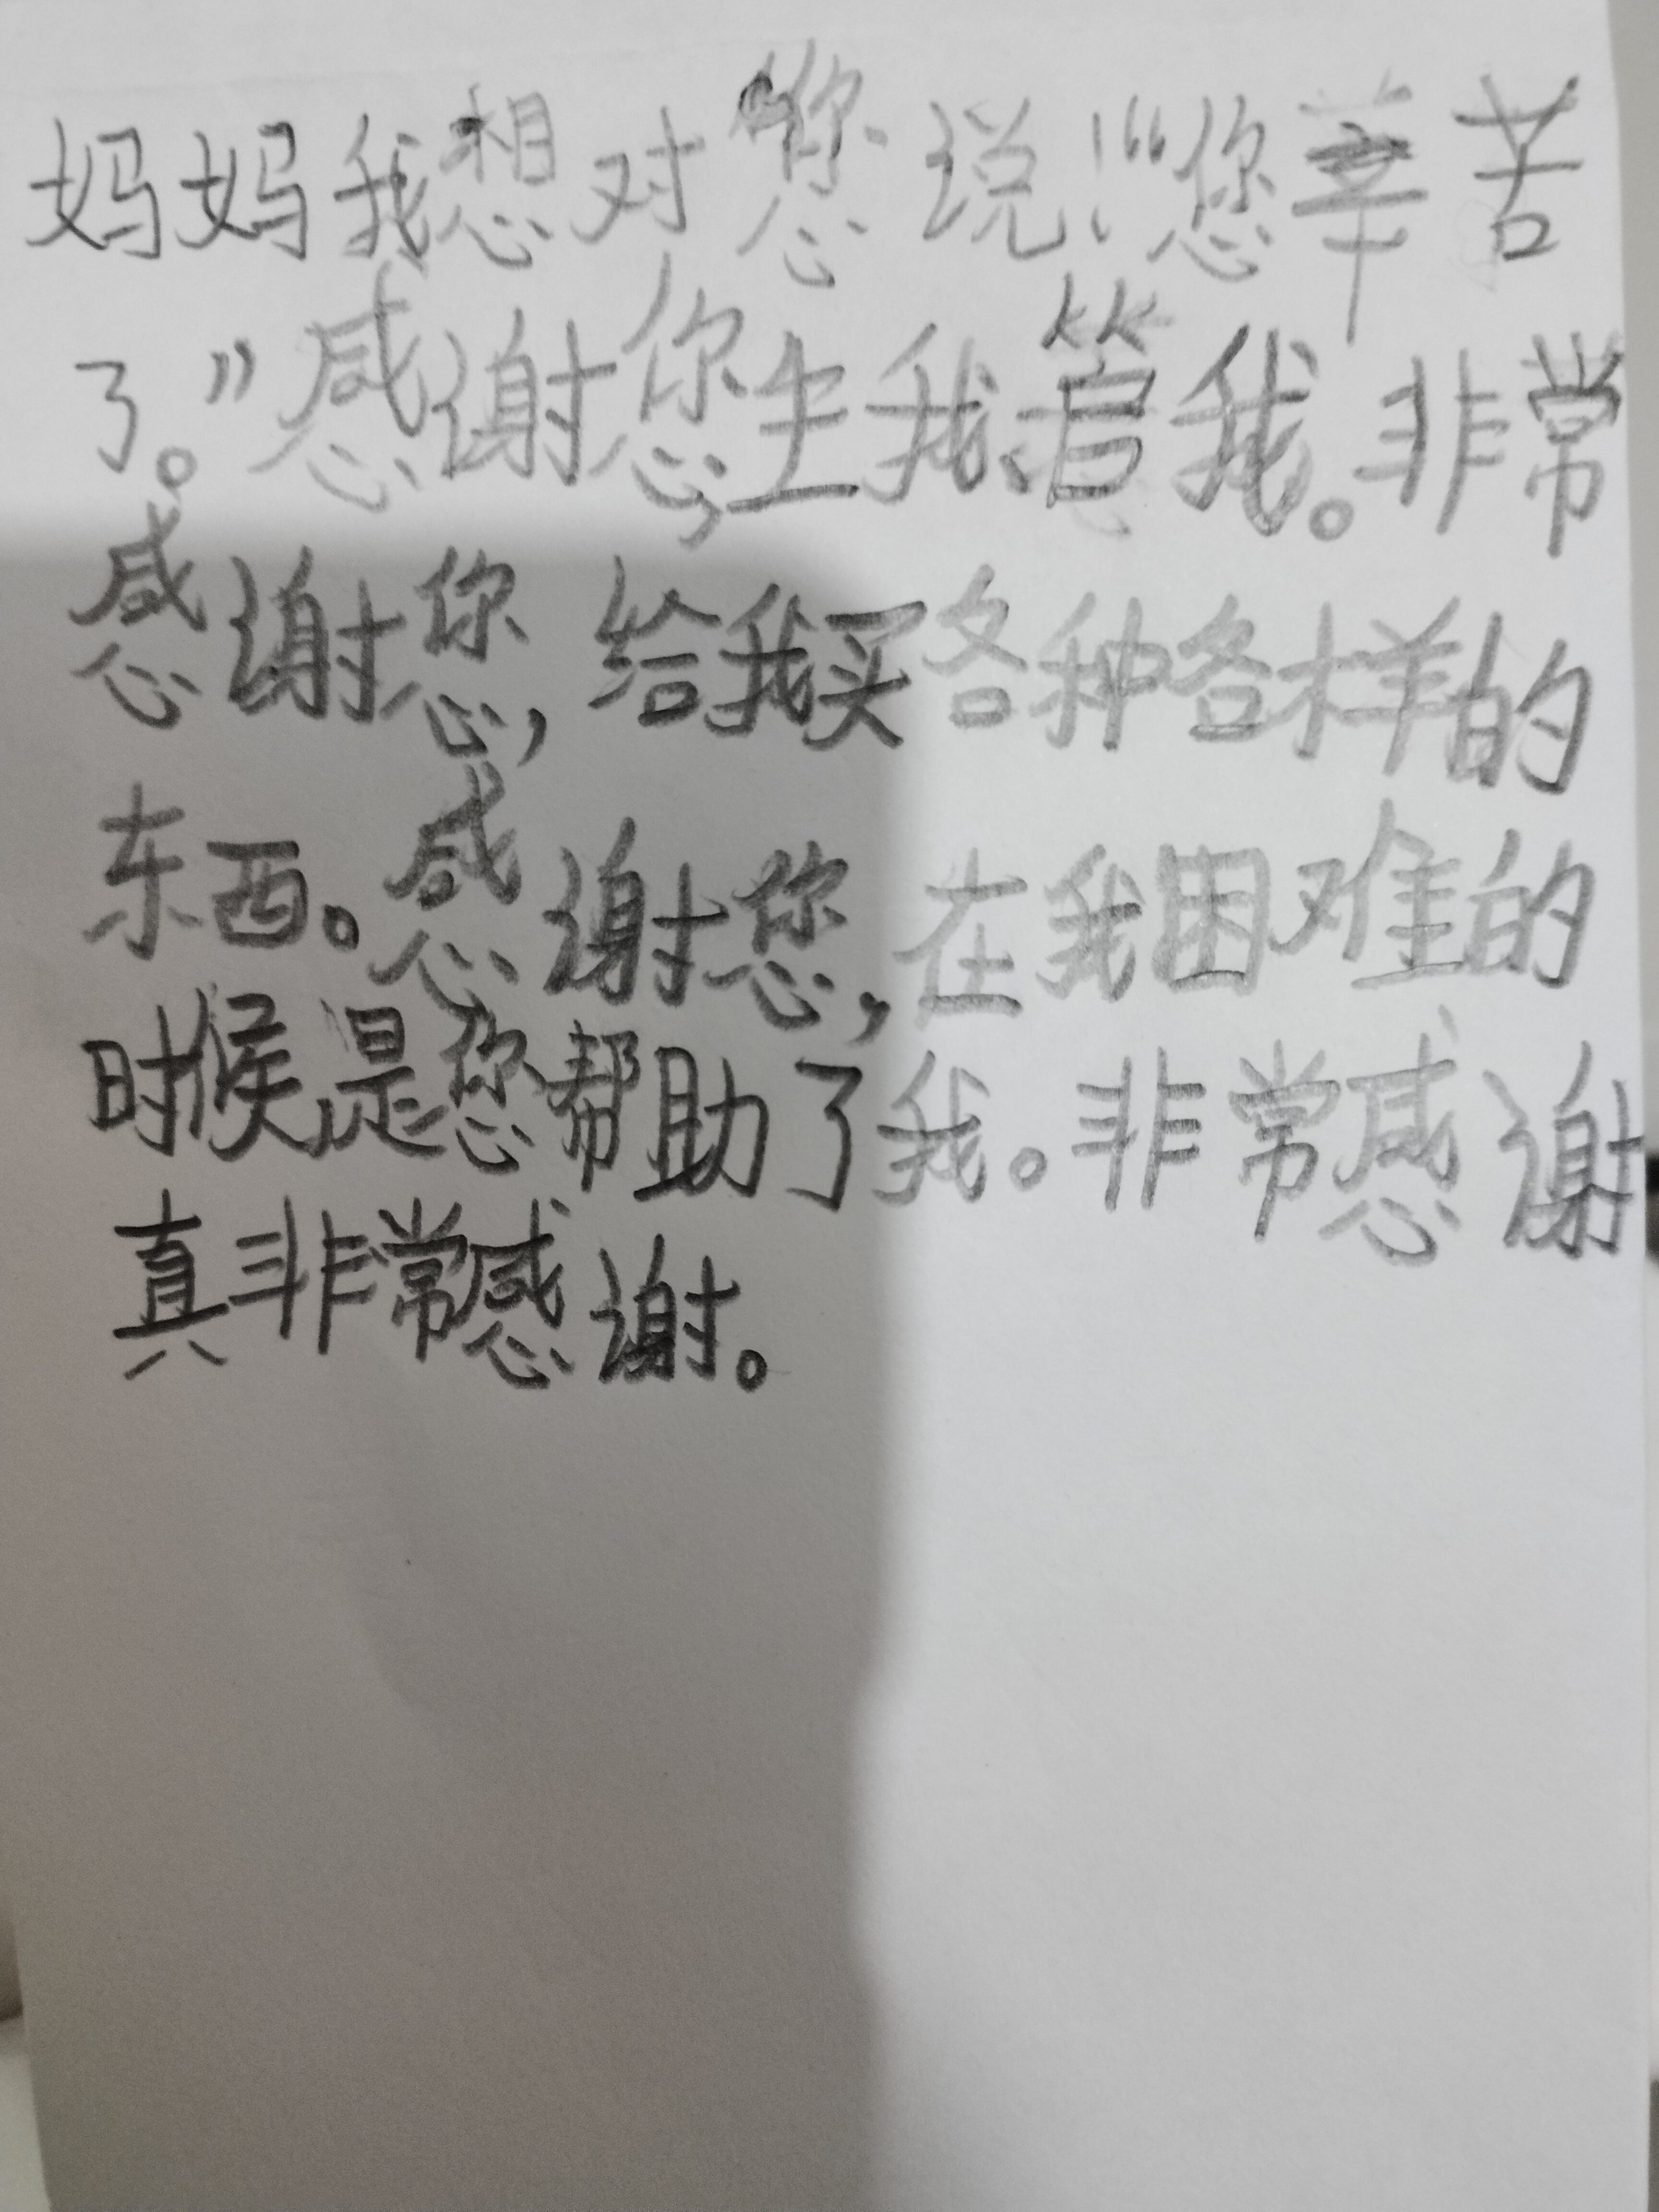 妈妈我想对您说！“您辛苦
了。”感谢您，生我、管我。非常
感谢您，给我买各种各样的
东西。感谢您，在我困难的
时候，是您帮助了我。非常感谢
真非常感谢。